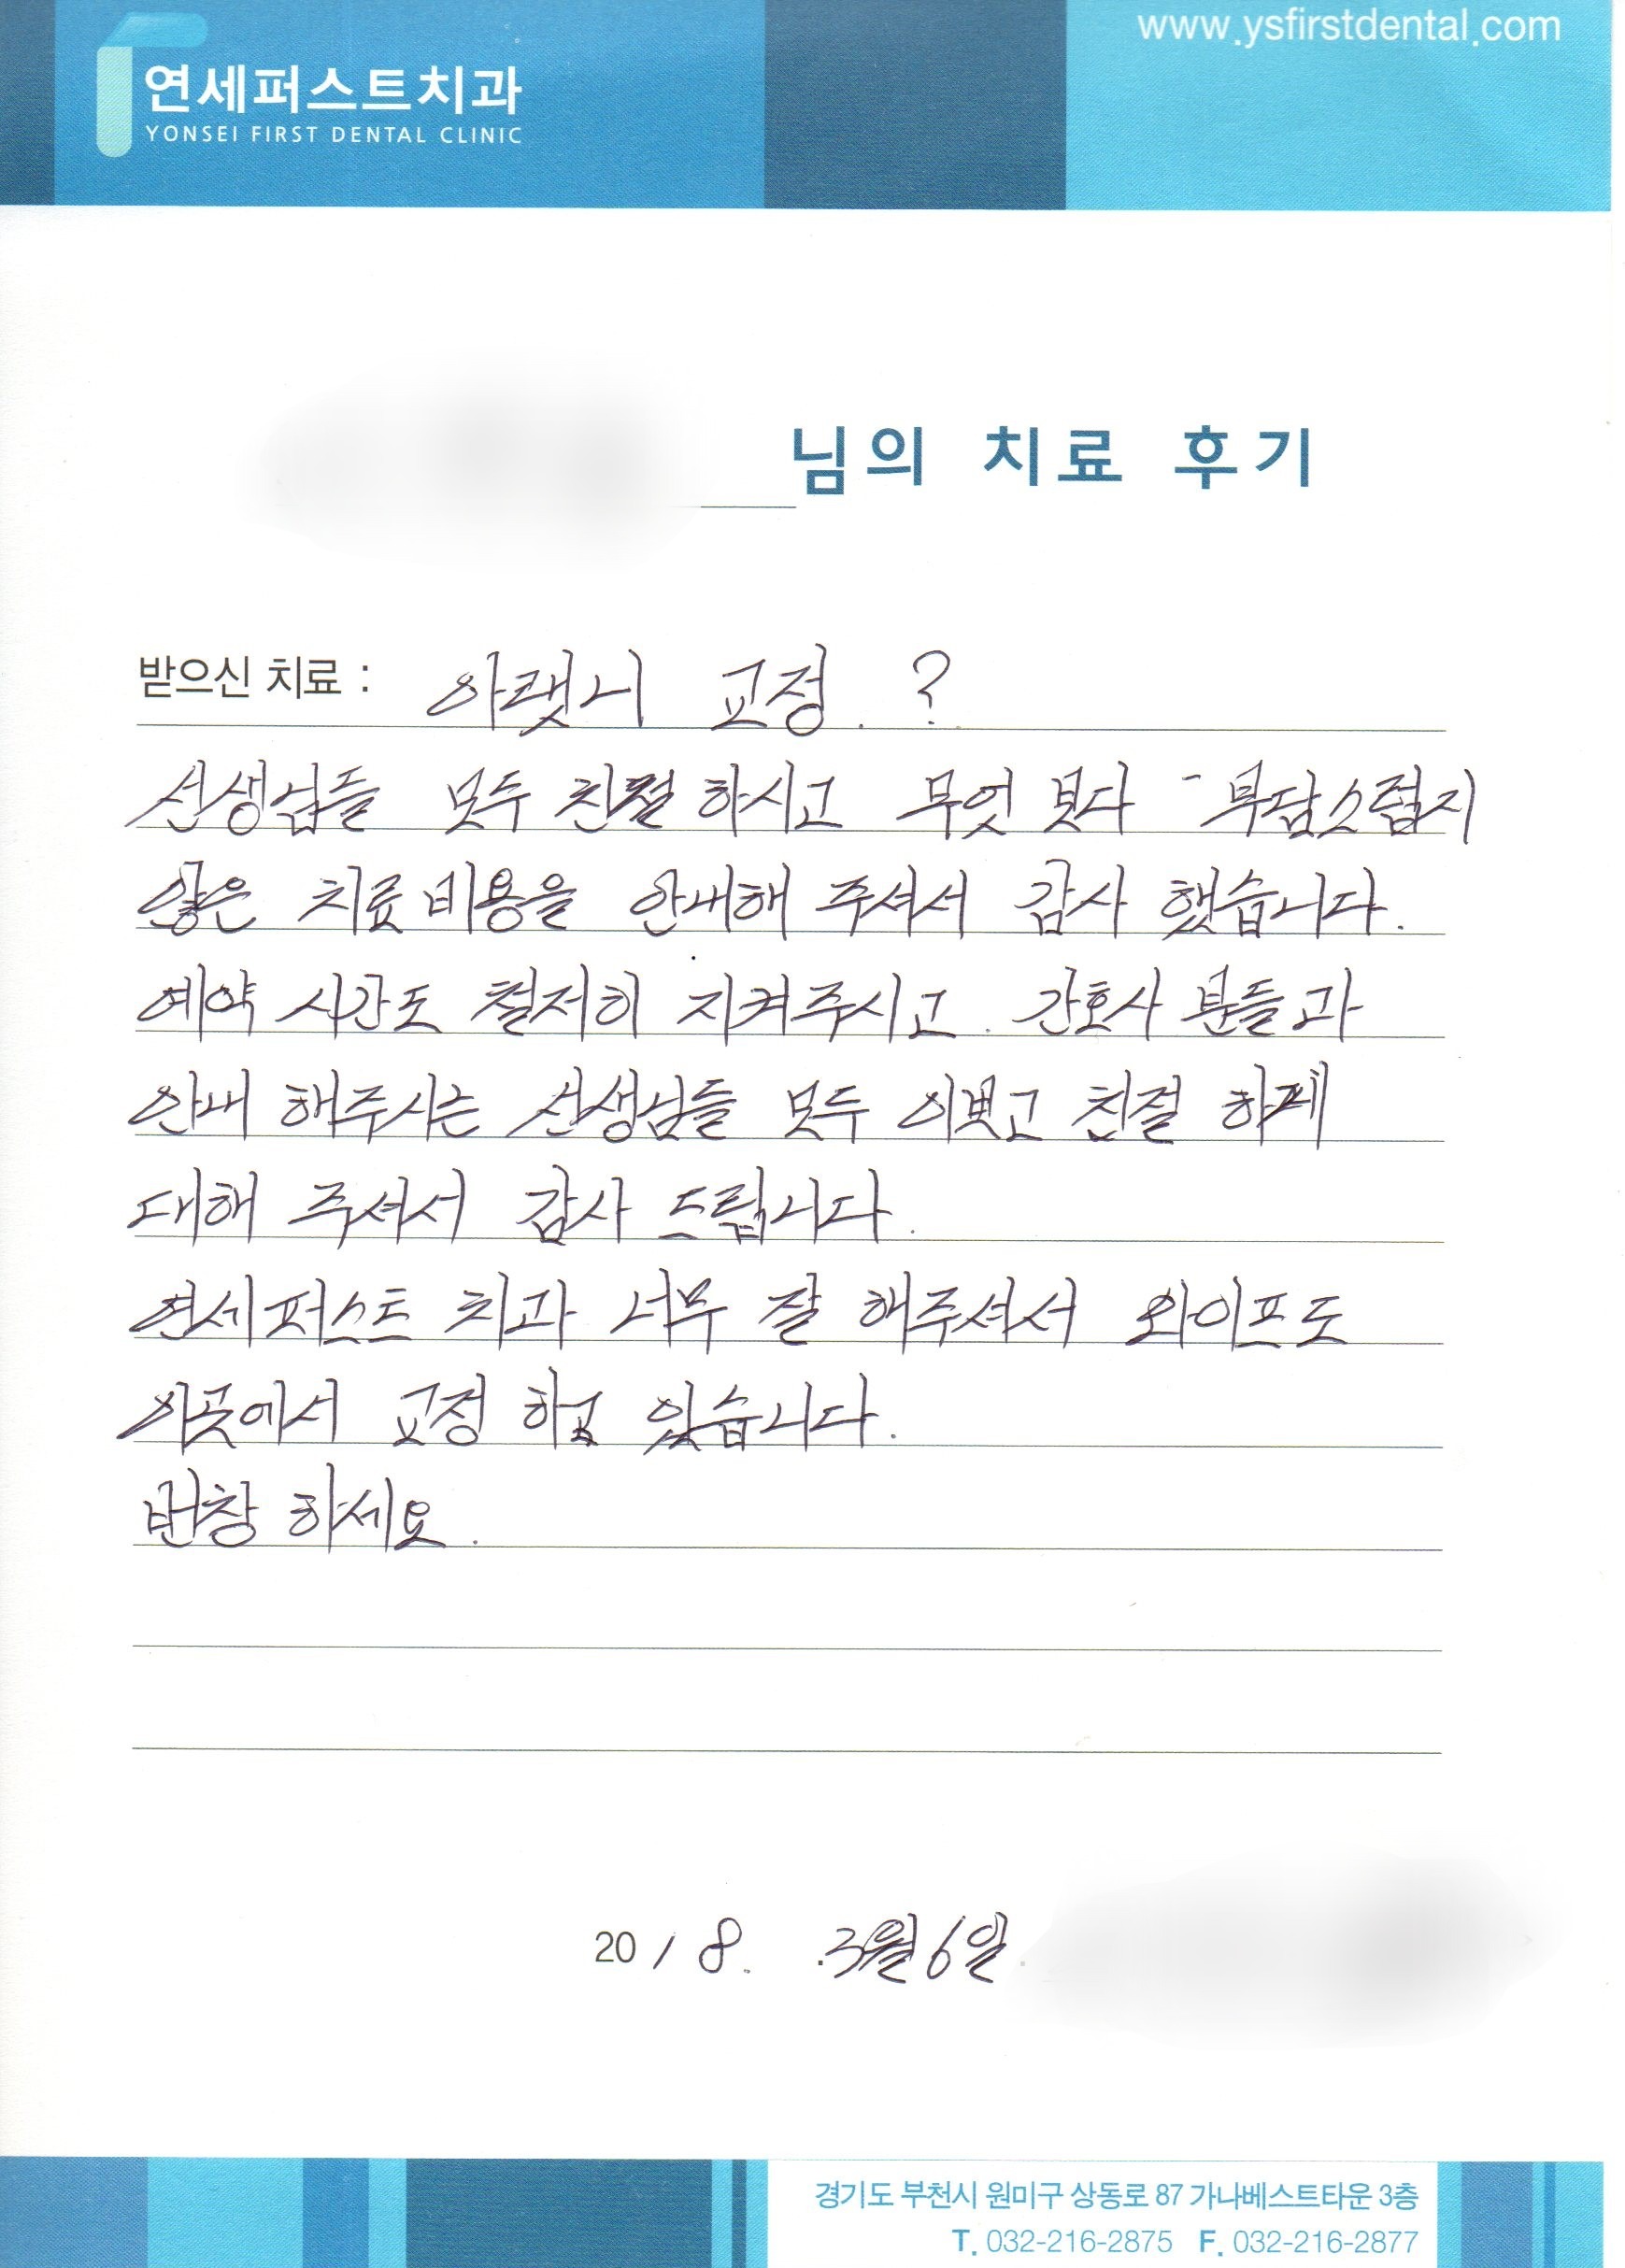 연세퍼스트치과
YONSEI FIRST DENTAL CLINIC
www.ysfirstdental.com
님의 치료 후기
받으신 치료 : 아랫니 교정. ?
선생님들 모두 친절 하시고 무엇 봇다 - 부담스럽지
않은 치료 비용을 안내해 주셔서 감사 했습니다.
예약 시간도 철저히 지켜주시고. 간호사 분들과
안내 해주시는 선생님들 모두 이쁘고 친절 하게
대해 주셔서 감사 드립니다.
연세퍼스트 치과 너무 잘 해주셔서 와이프도
이곳에서 교정 하고 있습니다.
번창 하세요.
2018. 3월6일
경기도 부천시 원미구 상동로 87 가나베스트타운 3층
T. 032-216-2875 F. 032-216-2877